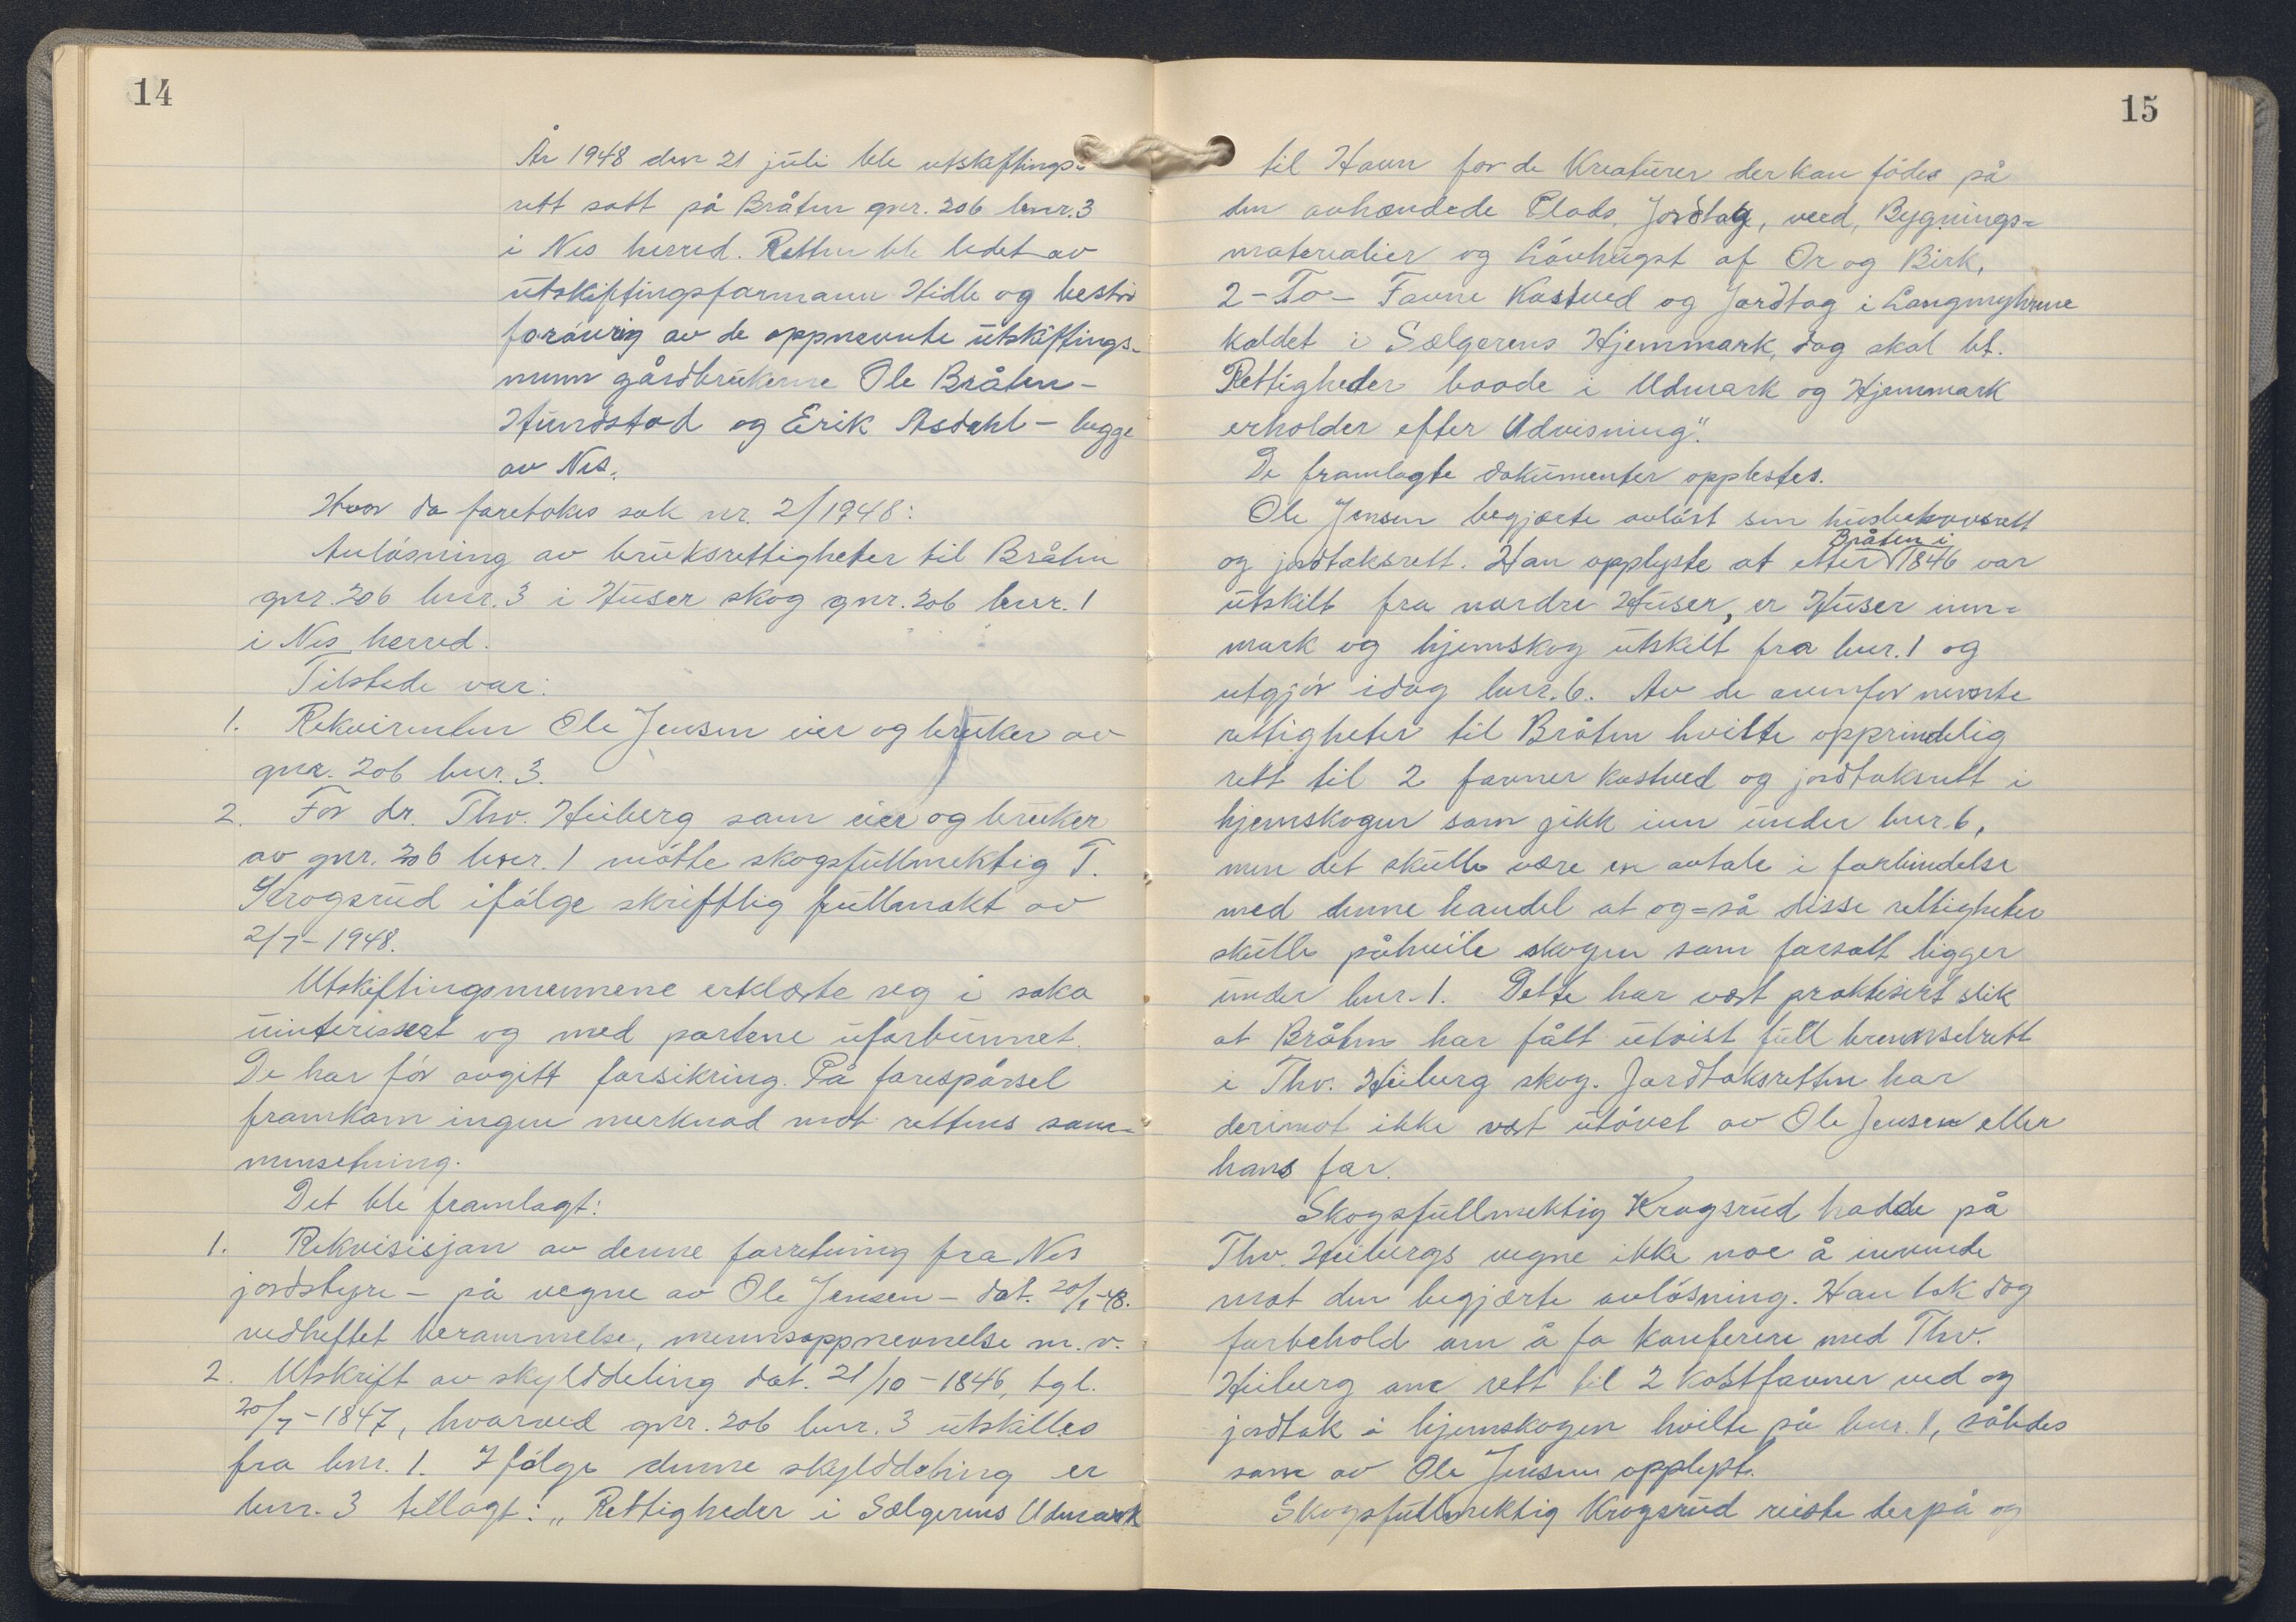 14
År 1948 den 21 juli ble utskiftings-
rett satt på Bråten gnr. 206 bnr. 3
i Nes herred. Retten ble ledet av
utskiftingsformann Hidle og bestod
forøvrig av de oppnevnte utskiftings-
menn gårdbrukerne Ole Bråten -
Hundstad og Erik Asdahl - begge
av Nes.
Hvor da foretokes sak nr. 2/1948:
Avløsning av bruksrettigheter til Bråten
gnr. 206 bnr. 3 i Huser skog gnr. 206 bnr. 1
i Nes herred.
Tilstede var:
1. Rekvirenten Ole Jensen eier og bruker av
gnr. 206 bnr. 3.
2. For dr. Thv. Heiberg som eier og bruker
av gnr. 206 bnr. 1 møtte skogsfullmektig T.
Krogsrud ifølge skriftlig fullmakt av
2/7-1948.
Utskiftingsmennene erklærte seg i saka
uinterissert og med partene uforbunnet.
De har før avgitt forsikring. På forespørsel
framkom ingen merknad mot rettens sam-
mensetning.
Det ble framlagt:
1. Rekvisisjon av denne forretning fra Nes
jordstyre - på vegne av Ole Jensen - dat. 20/1-48.
vedheftet berammelse, mennsoppnevnelse m. v.
2. Utskrift av skylddeling dat. 21/10-1846, tgl.
20/7-1847, hvorved gnr. 206 bnr. 3 utskilles
fra bnr. 1. Ifølge denne skylddeling er
bnr. 3 tillagt: „Rettigheder i Sælgerens Udmark
15
til Havn for de Kreaturer der kan fødes på
den avhændede Plads, Jordtag, veed, Bygnings-
materialier og Løvhugst af Or og Birk,
2-To- Favne Kastved og Jordtag i Langmyhrene
kaldet i Sælgerens Hjemmark, dog skal bt.
Rettigheder baade i Udmark og Hjemmark
erholder efter Udvisning".
De framlagte dokumenter opplestes.
Ole Jensen begjærte avløst sin husbehovsrett
Bråten i
og jordtaksrett. Han opplyste at etter 1846 var
utskilt fra nordre Huser, er Huser inn-
mark og hjemskog utskilt fra bnr. 1 og
utgjør idag bnr. 6. Av de ovenfor nevnte
rettigheter til Bråten hvilte opprindelig
rett til 2 favner kastved og jordtaksrett i
hjemskogen som gikk inn under bnr. 6,
men det skulle være en avtale i forbindelse
med denne handel at og-så disse rettigheter
skulle påhvile skogen som forsatt ligger
under bnr. 1. Dette har vært praktisert slik
at Bråten har fått utvist full brennselrett
i Thv. Heiberg skog. Jordtaksretten har
derimot ikke vært utøvet av Ole Jensen eller
hans far.
Skogsfullmektig Krogsrud hadde på
Thv. Heibergs vegne ikke noe å invende
mot den begjærte avløsning. Han tok dog
forbehold om å få konferere med Thv.
Heiberg om rett til 2 kastfavner ved og
jordtak i hjemskogen hvilte på bnr. 1, således
som av Ole Jensen opplyst.
Skogsfullmektig Krogsrud reiste derpå og